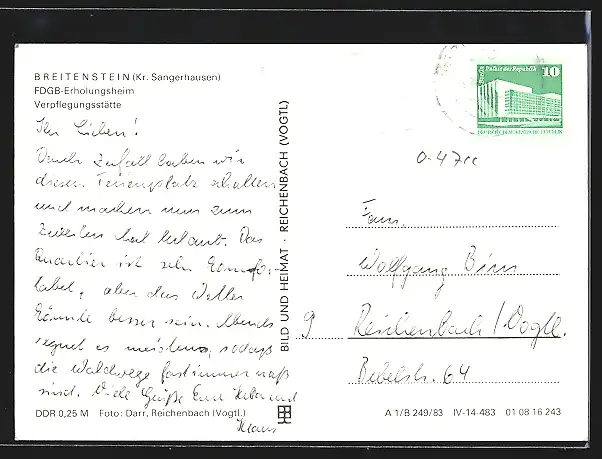 BREITENSTEIN (Kr. Sangerhausen)
FDGB-Erholungsheim
Verpflegungsstätte
Ihr Lieben!
Durch Zufall haben wir
diesen Ferienplatz erhalten
und machen nun zum
zweiten Mal Urlaub. Das
Quartier ist sehr komfor-
tabel, aber das Wetter
könnte besser sein. Abends
regnet es meistens, sodaß
die Waldwege fast immer naß
sind. Viele Grüße Eure und
Klaus
DDR 0,25 M Foto: Darr, Reichenbach (Vogtl.)
BILD UND HEIMAT · REICHENBACH (VOGTL)
Berlin, Palast der Republik 10
DEUTSCHE DEMOKRATISCHE REPUBLIK
0-47rc
Fam.
Wolfgang
9 Reichenbach/Vogtl.
Bebelstr. 64
A 1/B 249/83 IV-14-483 01 08 16 243